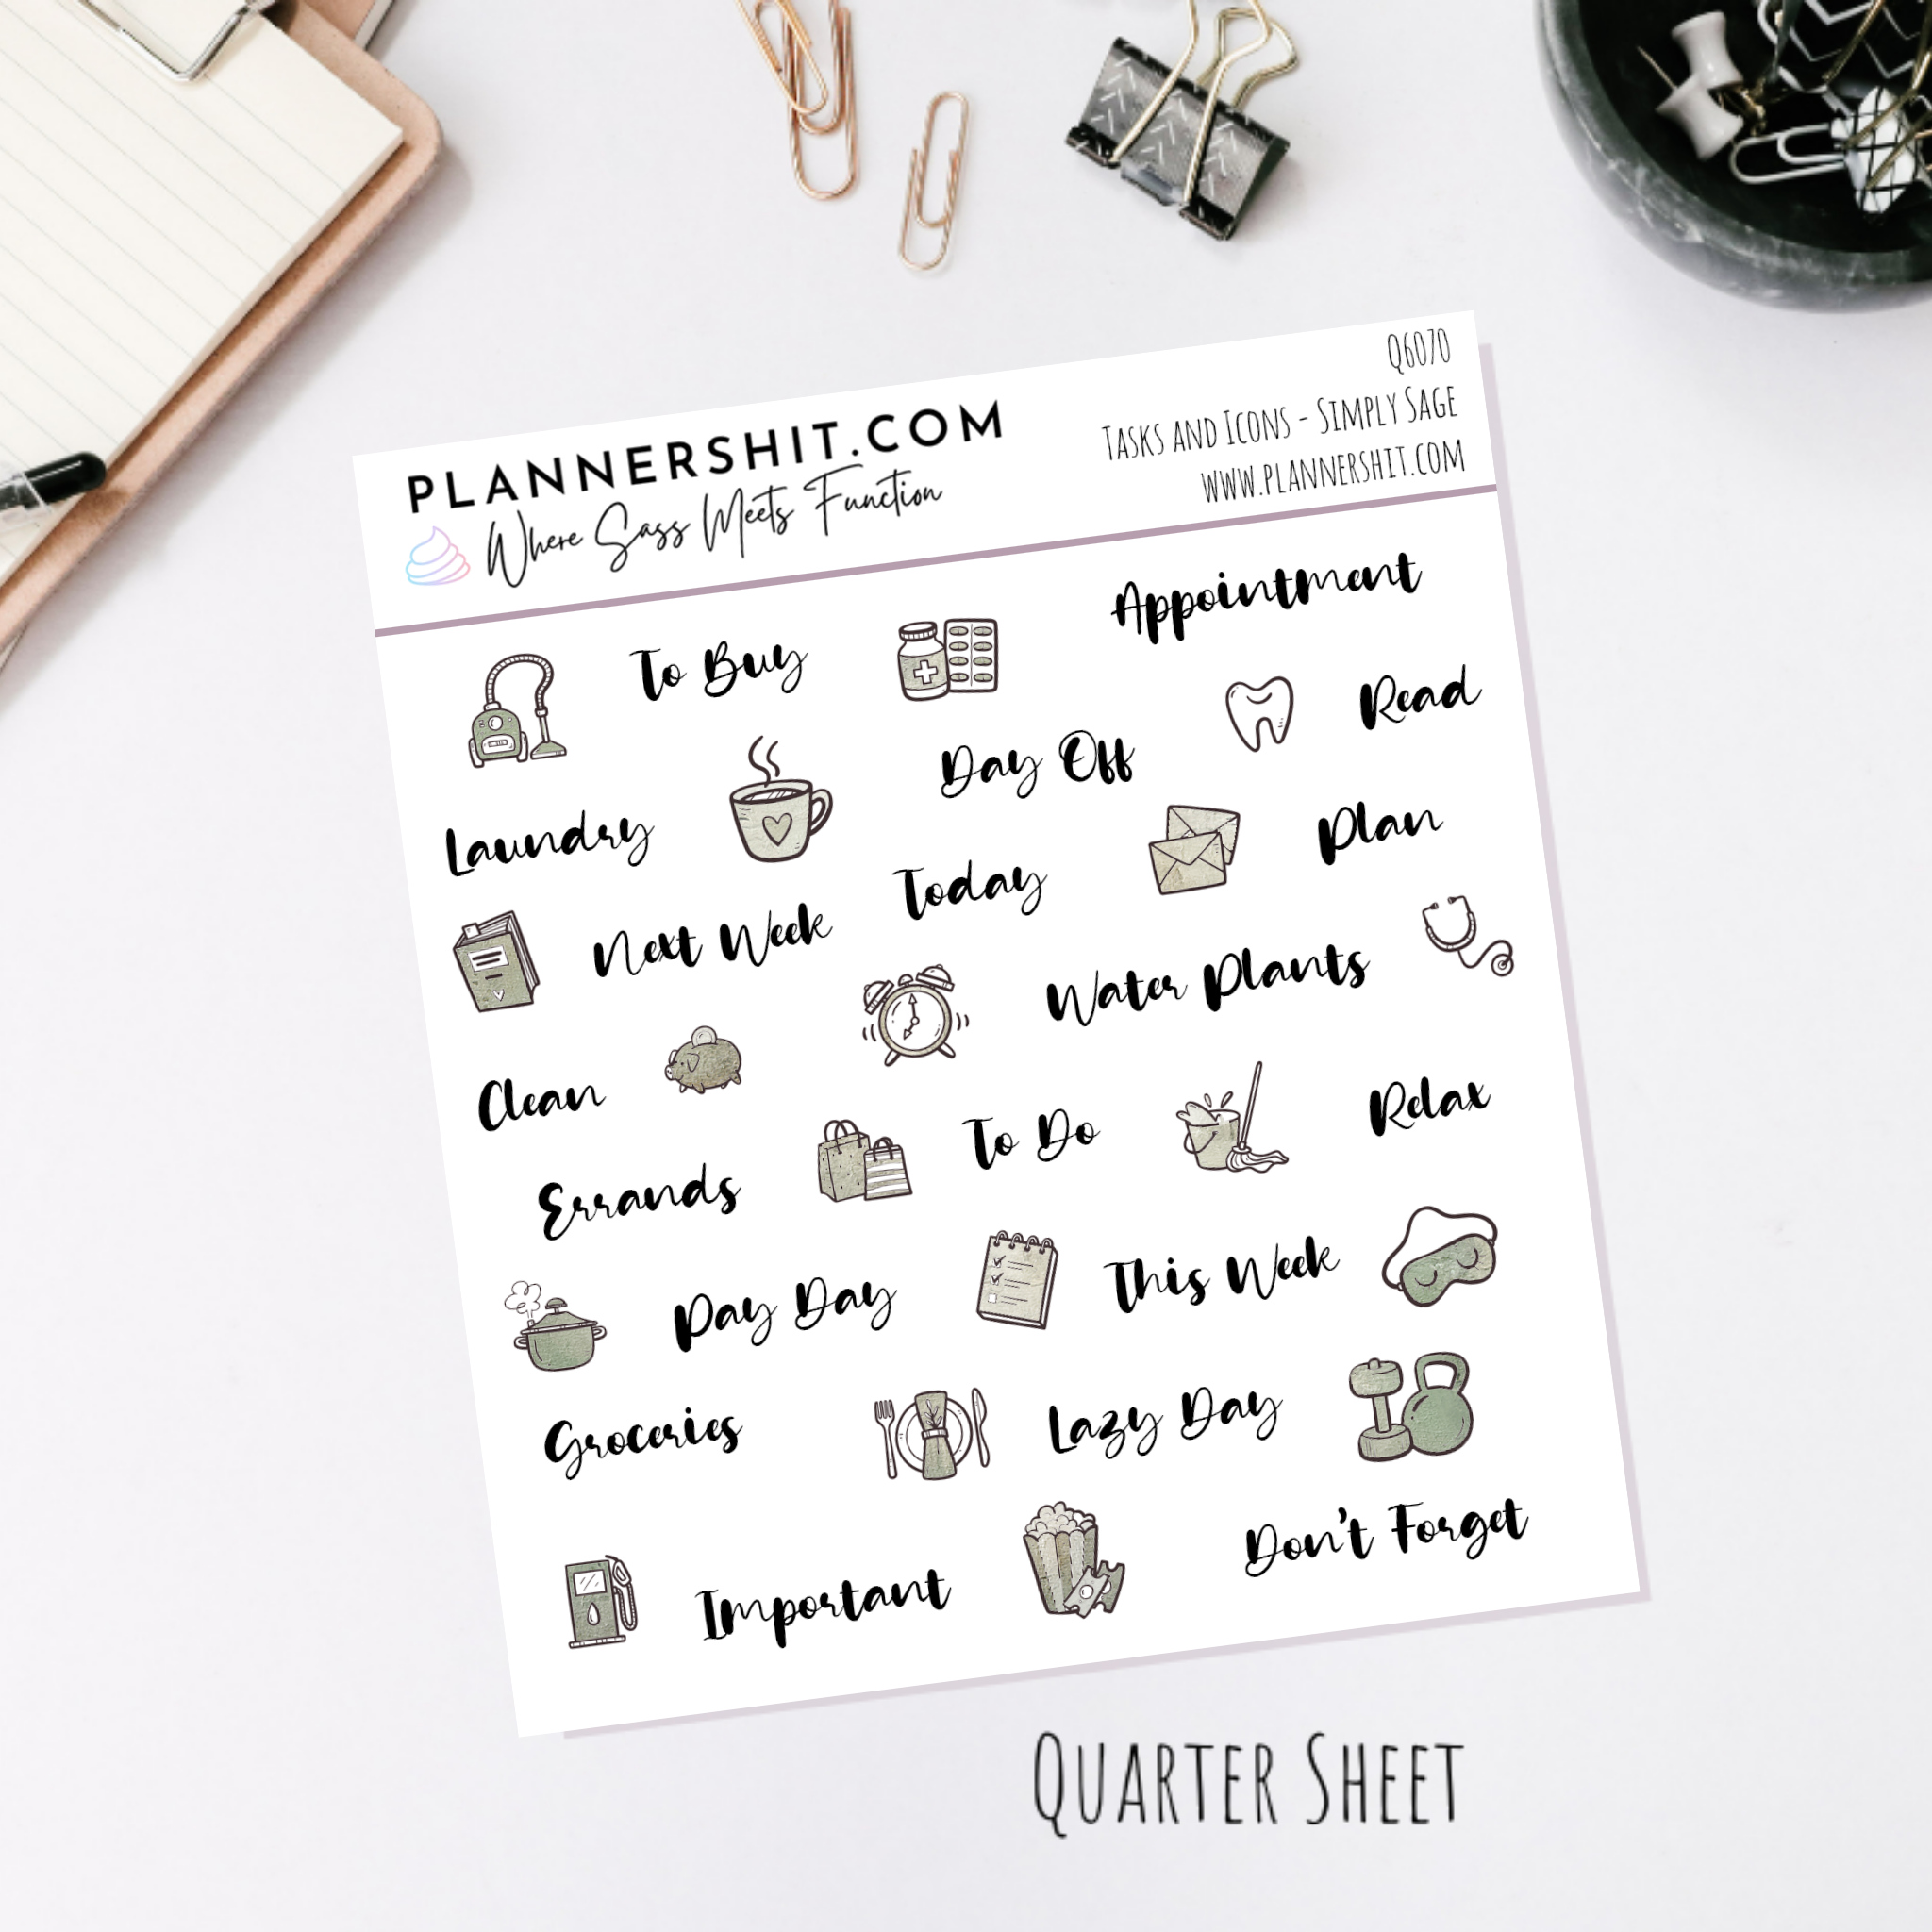 PLANNERSHIT.COM
Where Sass Meets Function
Q6070
Tasks and Icons - Simply Sage
www.plannershit.com
To Buy
Appointment
Laundry
Day Off
Read
Next Week
Today
Plan
Clean
Water Plants
Errands
To Do
Relax
Pay Day
This Week
Groceries
Lazy Day
Important
Don't Forget
Quarter Sheet